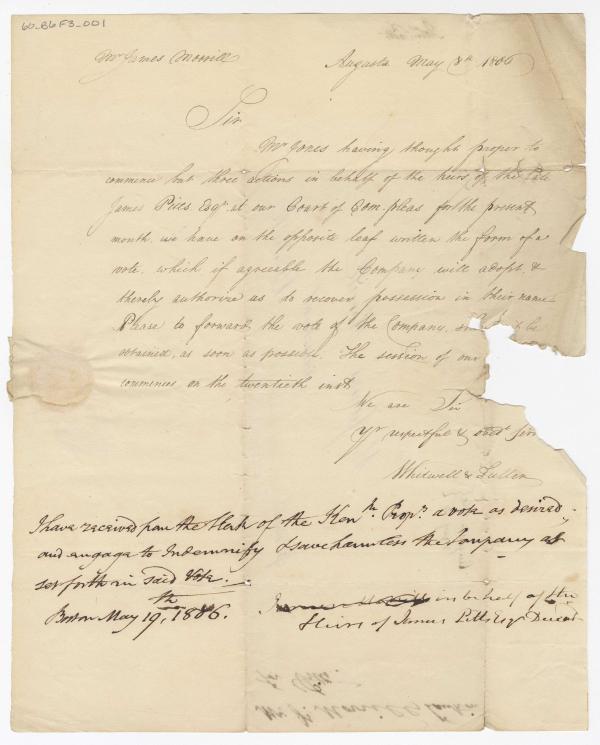 60-B6F3-001
Mr James Morrill Augusta May 8th 1806
Sir
Mr Jones having thought proper to
commence but three actions in behalf of the heirs of the late
James Pitts Esqr at our Court of Com. pleas for the present
month, we have on the opposite leaf written the form of a
vote, which if agreeable the Company will adopt, &
thereby authorize us to recover possession in their name
Please to forward, the vote of the Company, be
obtained, as soon as possible. The session of our
commences on the twentieth inst
We are Sir
Yr respectful & obedt Serv
Whitwell & Fuller
I have received from the Clerk of the Kenk Propr a vote as desired,
and engage to Indemnify & save harmless the Company as
set forth in said Vote.
Boston May 19th, 1806. James Morrill in behalf of the
Heirs of James Pitts Esqr Deceasd